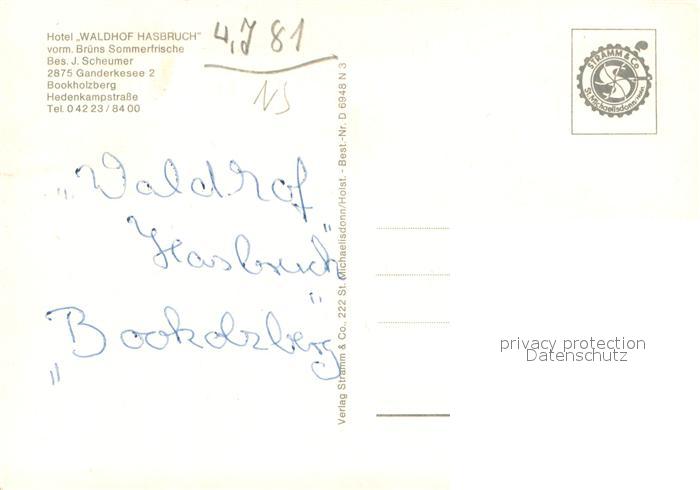 Hotel „WALDHOF HASBRUCH“
vorm. Brüns Sommerfrische
Bes. J. Scheumer
2875 Ganderkesee 2
Bookholzberg
Hedenkampstraße
Tel. 0 42 23 / 84 00
4,J 81
NS
„Waldhof
Hasbruch“
Bookolzberg
"
Verlag Stramm & Co., 222 St. Michaelisdonn/Holst. - Best.-Nr. D 6948 N 3
STRAMM & Co.
St. Michaelisdonn/Holst.
privacy protection
Datenschutz